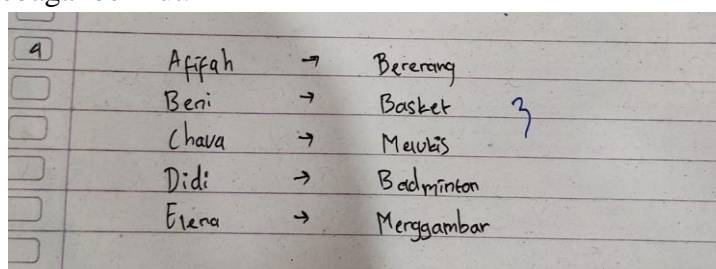 4 Afifah → Bererang
Beni → Basket 3
Chava → Melukis
Didi → Badminton
Elena → Menggambar